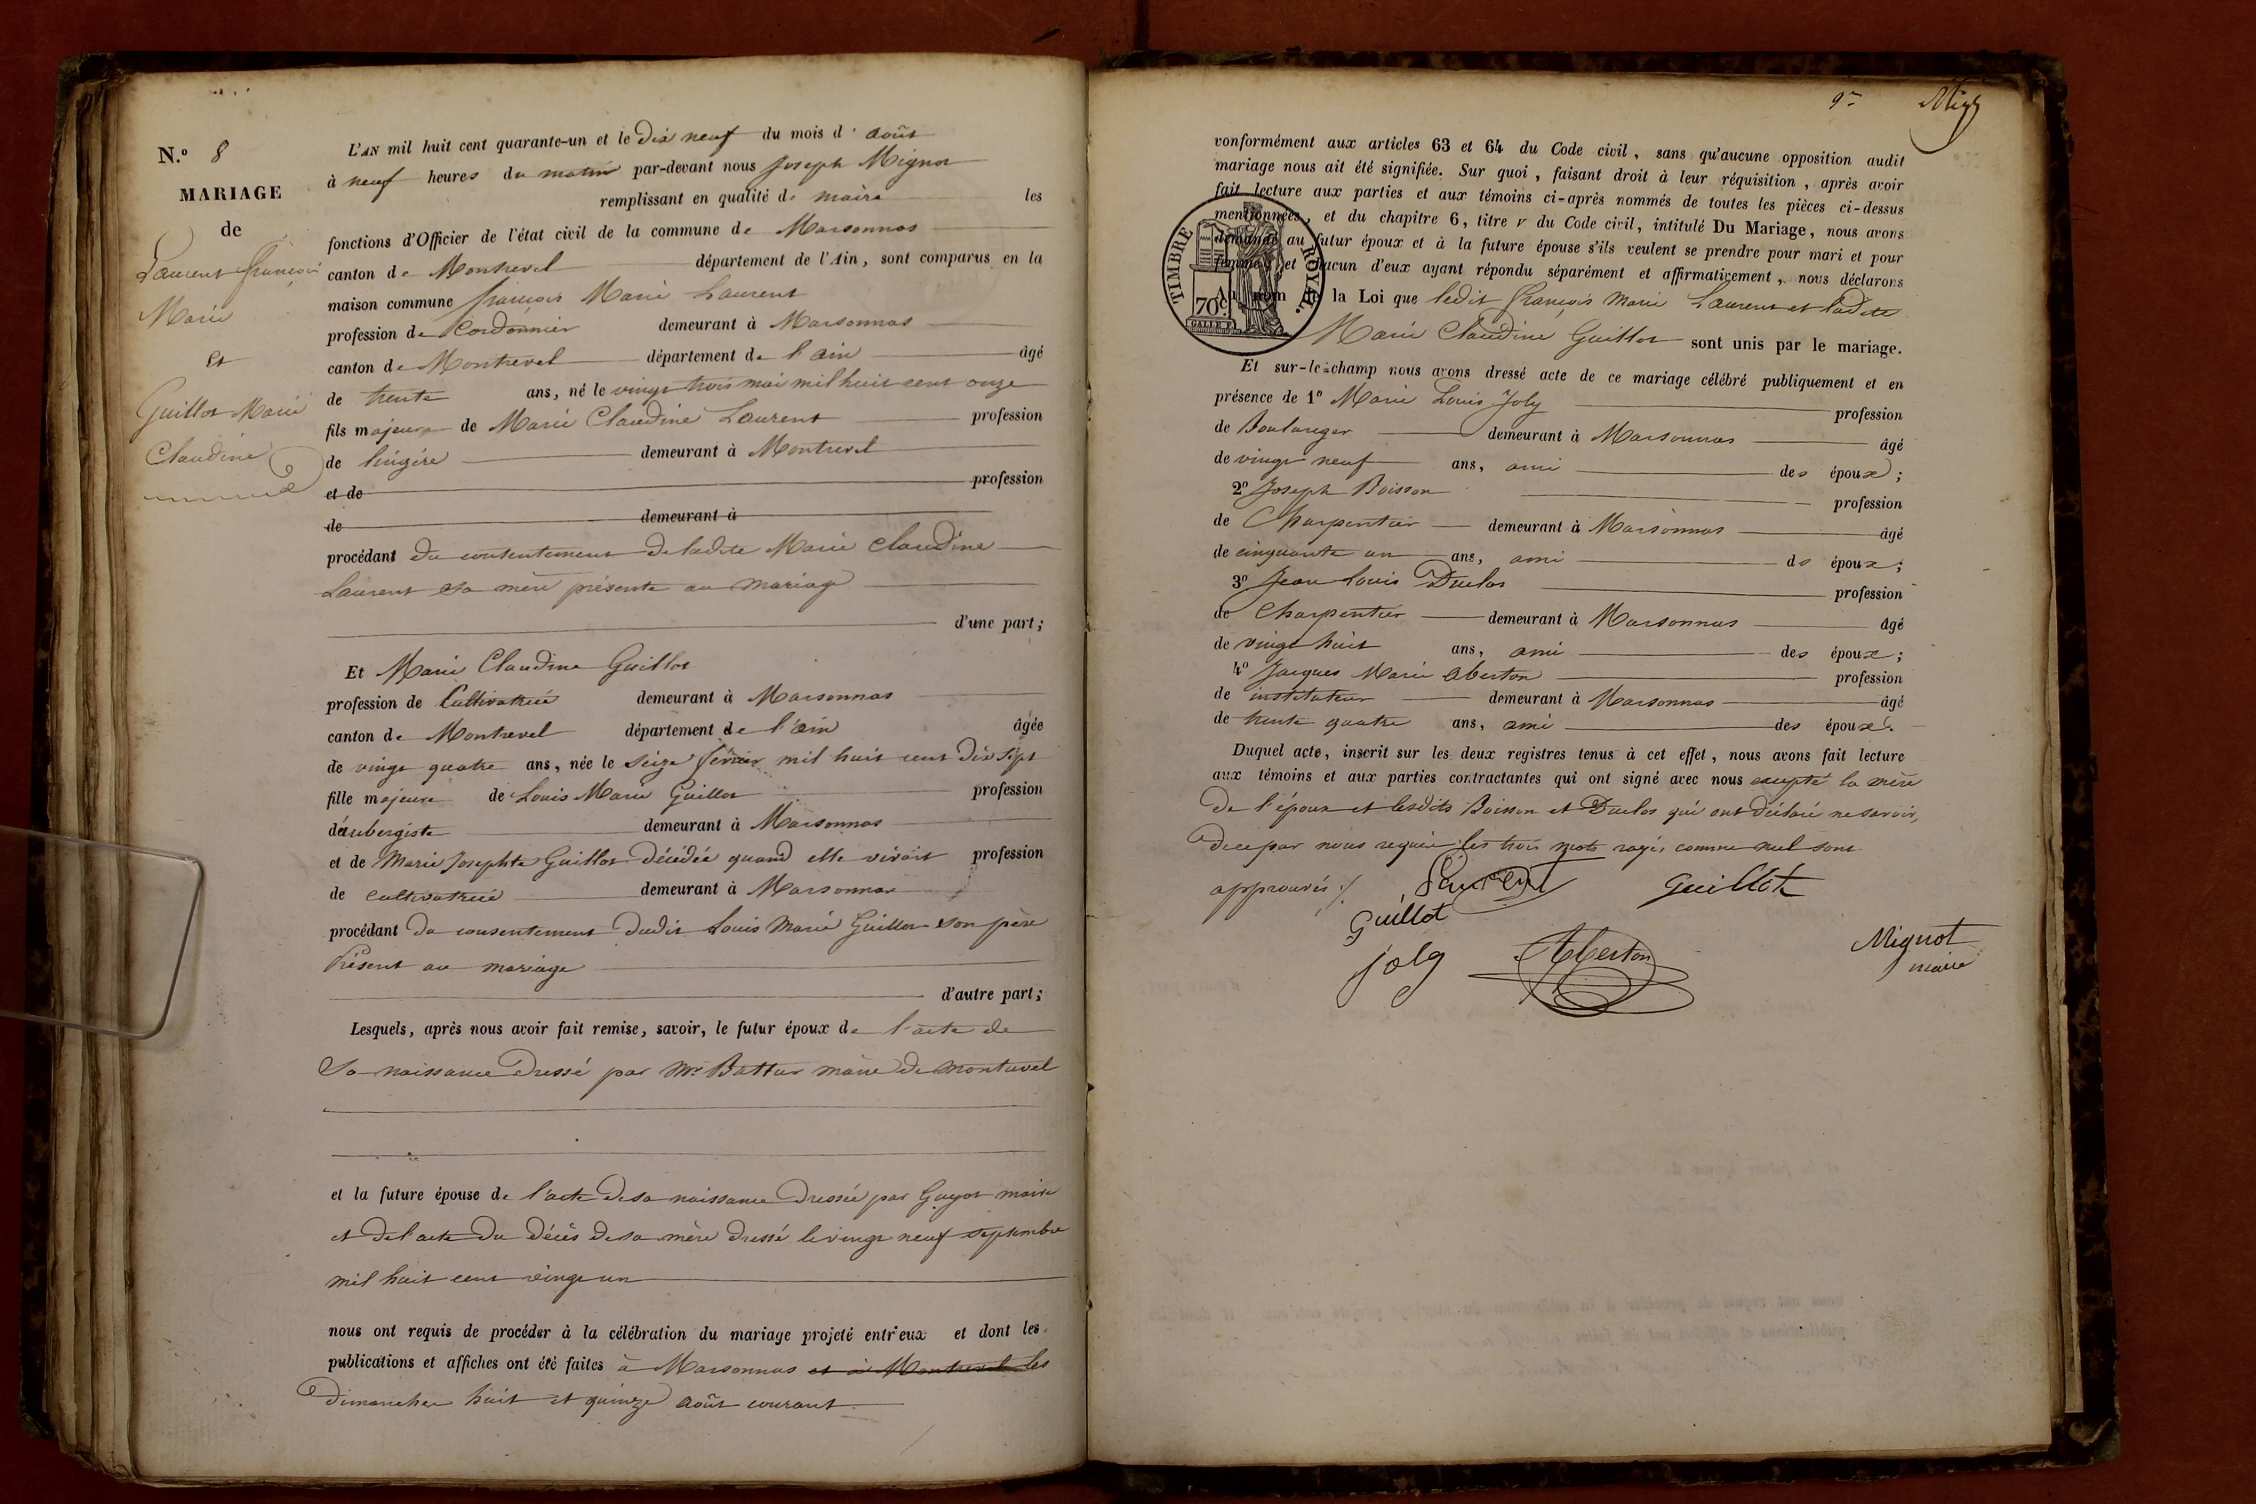 N.º 8
MARIAGE
de
Laurent françois
Marie
Et
Guillot Marie
Claudine
L'AN mil huit cent quarante-un et le dix neuf du mois d'août
à neuf heures du matin par-devant nous Joseph Mignot
remplissant en qualité de maire les
fonctions d'Officier de l'état civil de la commune de Marsonnas
canton de Montrevel département de l'Ain, sont comparus en la
maison commune françois Marie Laurent
profession de Cordonnier demeurant à Marsonnas
canton de Montrevel département de l'ain âgé
de trente ans, né le vingt trois mai mil huit cent onze
fils majeur de Marie Claudine Laurent profession
de lingère demeurant à Montrevel
et de profession
de demeurant à
procédant du contentement de ladite Marie Claudine
Laurent sa mère présente au mariage
d'une part;
Et Marie Claudine Guillot
profession de Cultivatrice demeurant à Marsonnas
canton de Montrevel département de l'ain âgée
de vingt quatre ans, née le seize février mil huit cent dix sept
fille majeure de Louis Marie Guillot profession
d'aubergiste demeurant à Marsonnas
et de Marie Josephte Guillot décédée quand elle vivait profession
de cultivatrice demeurant à Marsonnas
procédant du consentement dudit Louis Marie Guillot son père
Présent au mariage
d'autre part;
Lesquels, après nous avoir fait remise, savoir, le futur époux de l'acte de
sa naissance dressé par Mr Battur maire de Montrevel
et la future épouse de l'acte de sa naissance dressée par Guyot maire
et de l'acte du décès de sa mère dressé le vingt neuf septembre
mil huit cent vingt un
nous ont requis de procéder à la célébration du mariage projeté entr'eux et dont les
publications et affiches ont été faites à Marsonnas et à Montrevel les
dimanches huit et quinze août courant
9
vonformément aux articles 63 et 64 du Code civil, sans qu'aucune opposition audit
mariage nous ait été signifiée. Sur quoi, faisant droit à leur réquisition, après avoir
fait lecture aux parties et aux témoins ci-après nommés de toutes les pièces ci-dessus
mentionnées, et du chapitre 6, titre v du Code civil, intitulé Du Mariage, nous avons
demandé au futur époux et à la future épouse s'ils veulent se prendre pour mari et pour
femme; et chacun d'eux ayant répondu séparément et affirmativement, nous déclarons
Au nom de la Loi que ledit françois Marie Laurent et ladite
Marie Claudine Guillot sont unis par le mariage.
TIMBRE ROYAL.
70c.
GALLE F.
Et sur-le-champ nous avons dressé acte de ce mariage célébré publiquement et en
présence de 1º Marie Louis Joly profession
de Boulanger demeurant à Marsonnas âgé
de vingt neuf ans, ami des époux;
2º Joseph Boisson profession
de Charpentier demeurant à Marsonnas âgé
de cinquante un ans, ami ds époux;
3º Jean Louis Duclos profession
de Charpentier demeurant à Marsonnas âgé
de vingt huit ans, ami des époux;
4º Jacques Marie Aberton profession
de instituteur demeurant à Marsonnas âgé
de trente quatre ans, ami des époux.
Duquel acte, inscrit sur les deux registres tenus à cet effet, nous avons fait lecture
aux témoins et aux parties contractantes qui ont signé avec nous excepté la mère
de l'époux et lesdits Boisson et Duclos qui ont déclaré ne savoir,
de ce par nous requis les trois mots rayés comme nul sont
approuvés
Laurent Guillot
Guillot
joly Aberton Mignot
maire